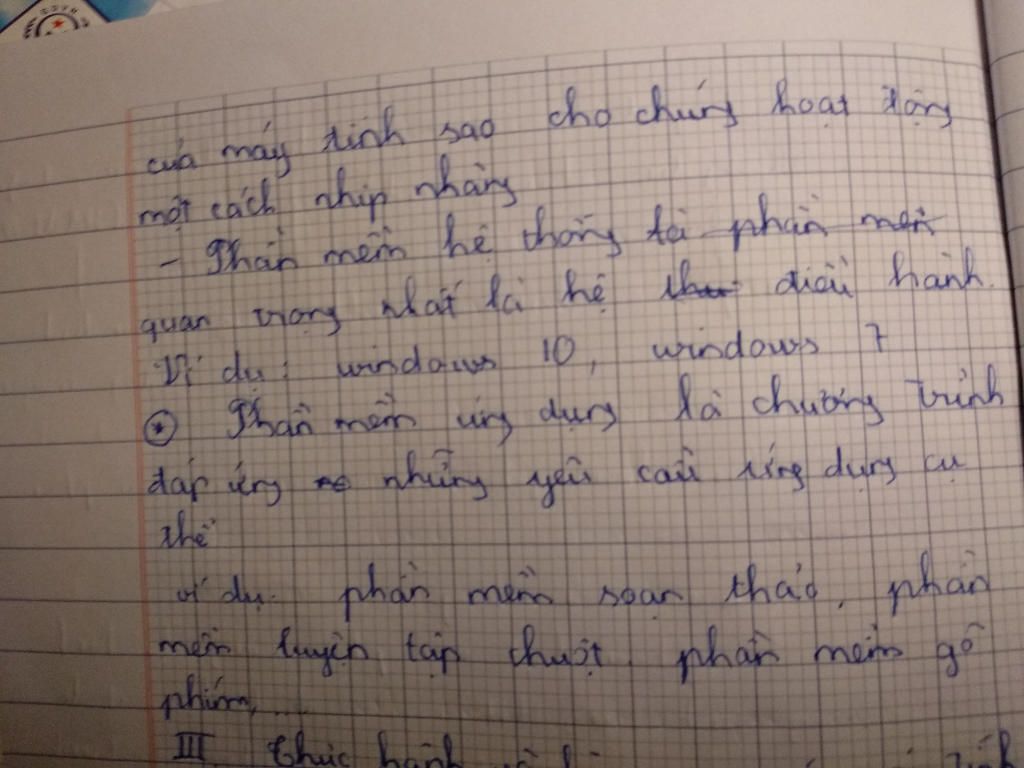 của máy tính sao cho chúng hoạt động
một cách nhịp nhàng
- Phần mềm hệ thống là phần mền
quan trọng nhất là hệ điều hành.
Ví dụ: windows 10, windows 7
* Phần mềm ứng dụng là chương trình
đáp ứng những yêu cầu ứng dụng cụ
thể
ví dụ. phần mềm soạn thảo, phần
mềm luyện tập chuột, phần mềm gõ
phím, ....
III Thực hành